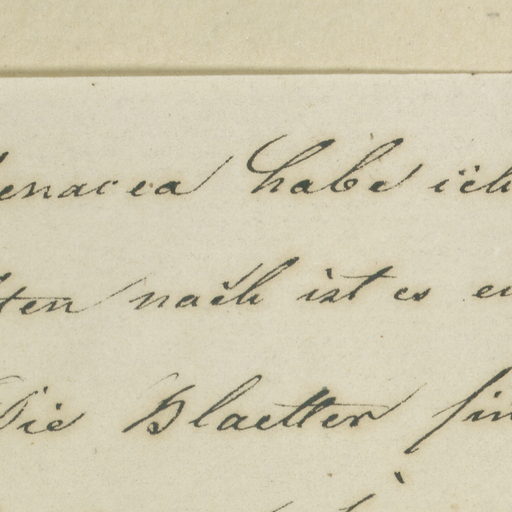 enacea habe ich
ten nach ist es
Die Blaetter